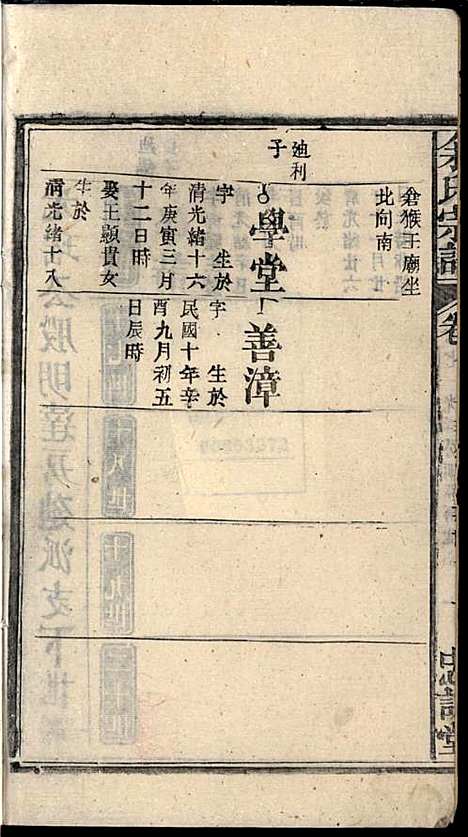 余氏宗譜
卷
忠訓堂
倉猴王廟坐
北向南
廸利
子
學堂
字 生於
清光緒十六
年庚寅三月
十二日時
娶王顯貴女
生於
清光緒十八
善漳
字 生於
民國十年辛
酉九月初五
日辰時